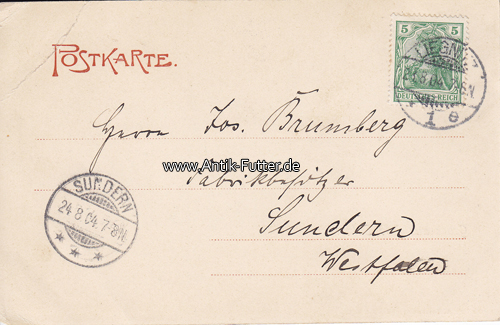 POSTKARTE.
5 5
DEUTSCHES REICH
LIEGNITZ
04
1 e
Herrn Jos. Brumberg
www.Antik-Futter.de
Fabrikbesitzer
Sundern
Westfalen
SUNDERN
24.8.04.7-8N.